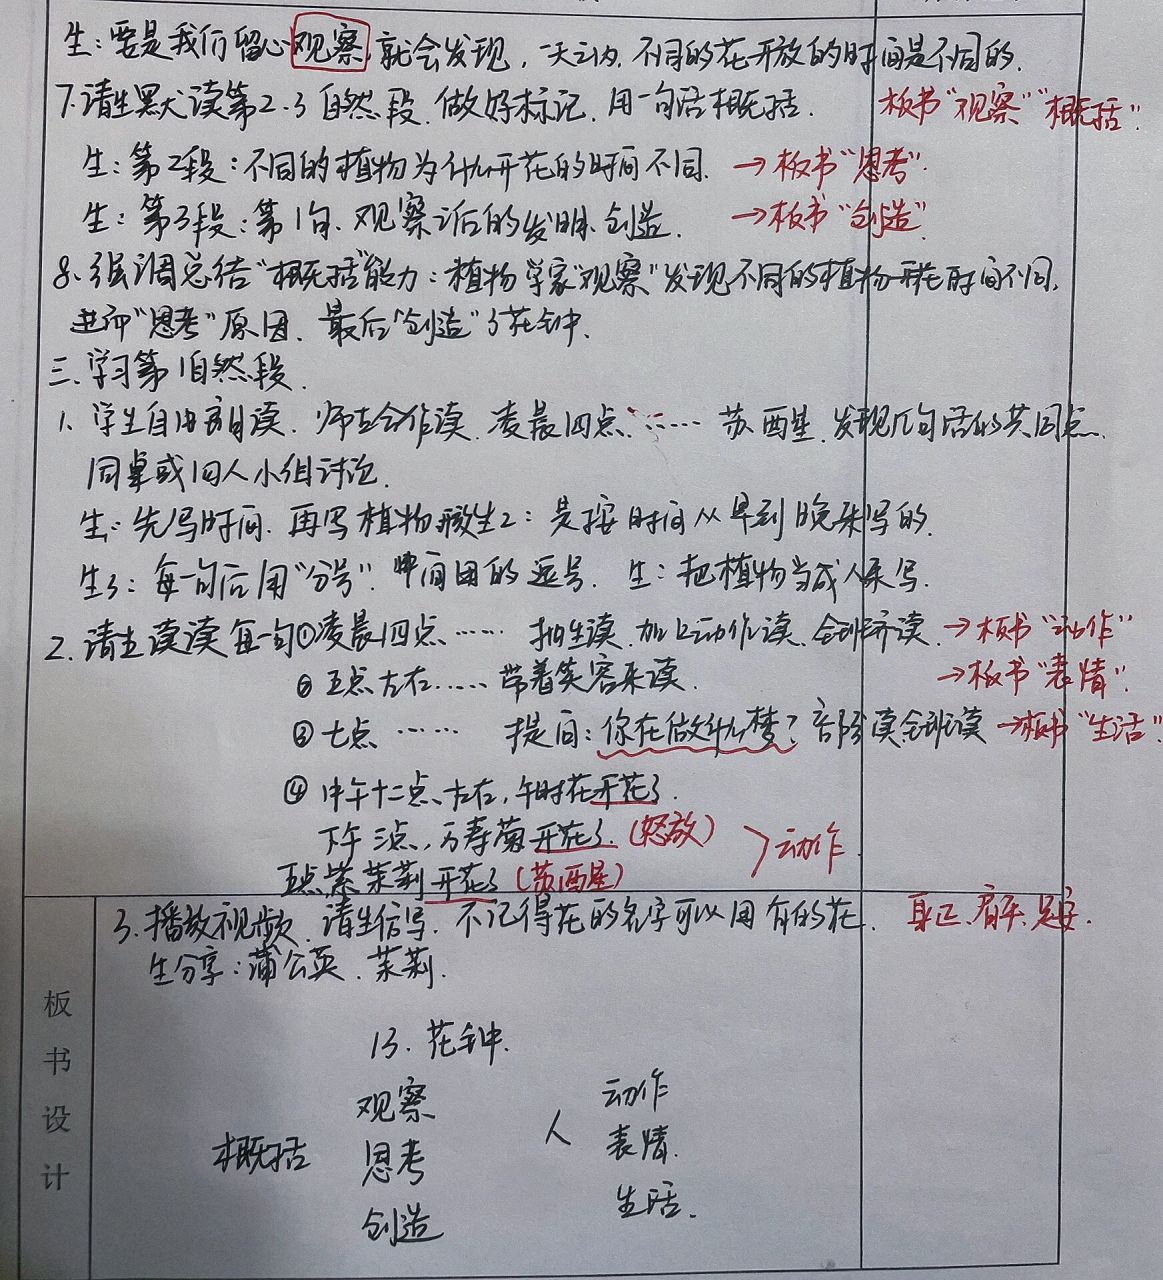 生：要是我们留心观察,就会发现，一天之内,不同的花开放的时间是不同的.
7.请生默读第2.3自然段.做好标记.用一句话概括. 板书"观察""概括".
生：第2段：不同的植物为什么开花的时间不同. →板书"思考".
生：第3段：第1句.观察之后的发明.创造. →板书"创造".
8.强调总结"概括"能力：植物学家"观察"发现不同的植物开花时间不同,
进而"思考"原因.最后"创造"了花钟.
三.学习第1自然段.
1、学生自由朗读.师生合作读.凌晨四点…… 苏醒.发现几句话的共同点.
同桌或四人小组讨论.
生：先写时间.再写植物 生2：是按时间从早到晚来写的.
生3：每一句后用"分号".中间用的逗号. 生：把植物当成人来写.
2.请生读读每一句①凌晨四点…… 抽生读.加上动作读.全班齐读 →板书"动作"
②五点左右…… 带着笑容来读. →板书"表情".
③七点…… 提问：你在做什么梦？ 读全班读 →板书"生活".
④中午十二点左右，午时花开花了.
下午三点，万寿菊开花了.(怒放) 〉动作.
五点紫茉莉开花了(苏醒)
3.播放视频.请生仿写.不记得花的名字可以用有的花. 身正.肩平.足安.
生分享：蒲公英.茉莉.
板书设计
13.花钟.
观察 动作
概括 思考 人 表情.
创造 生活.